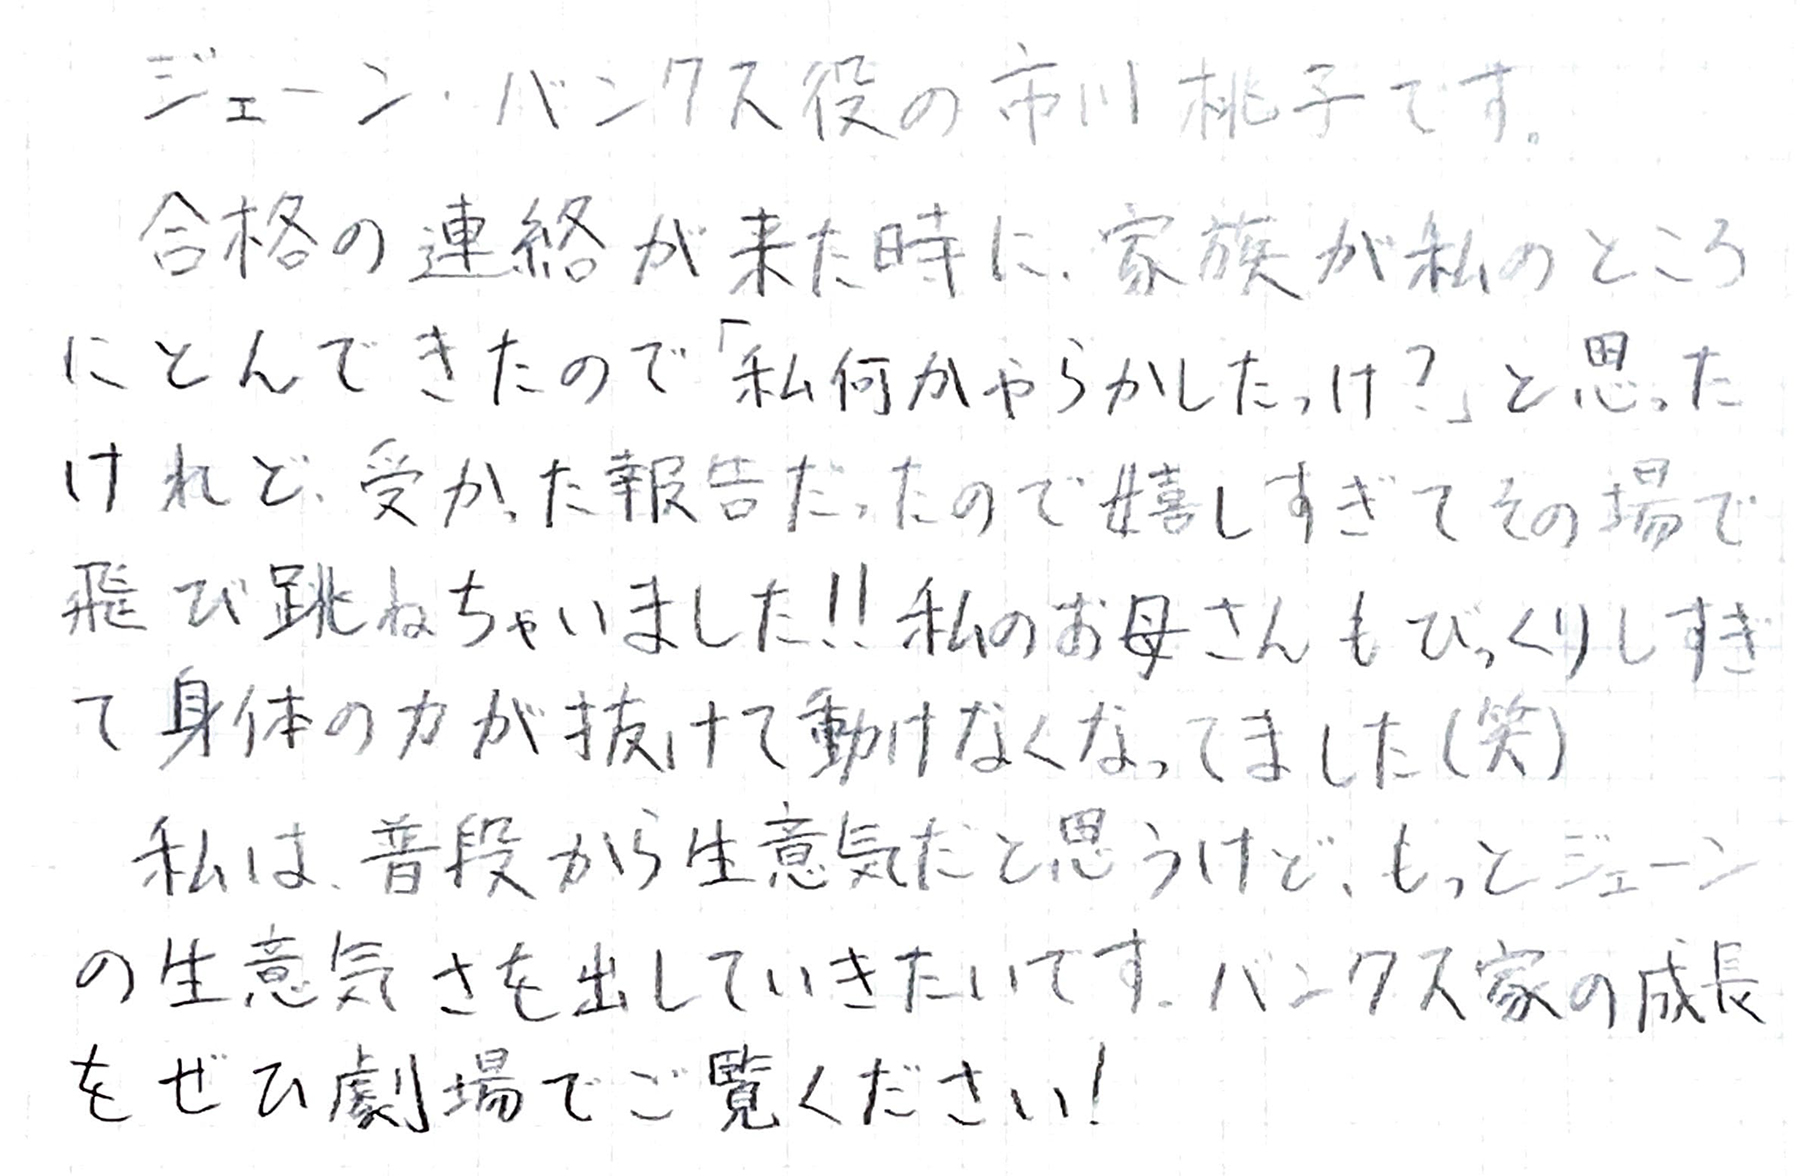 ジェーン・バンクス役の市川桃子です。
合格の連絡が来た時に、家族が私のところ
にとんできたので「私何かやらかしたっけ?」と思った
けれど、受かった報告だったので嬉しすぎてその場で
飛び跳ねちゃいました!!私のお母さんもびっくりしすぎ
て身体の力が抜けて動けなくなってました(笑)
私は、普段から生意気だと思うけど、もっとジェーン
の生意気さを出していきたいです。バンクス家の成長
をぜひ劇場でご覧ください!